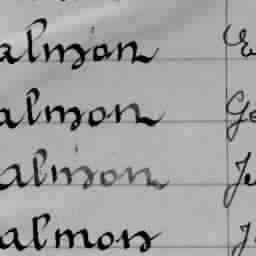 almon
almon
almon
almon